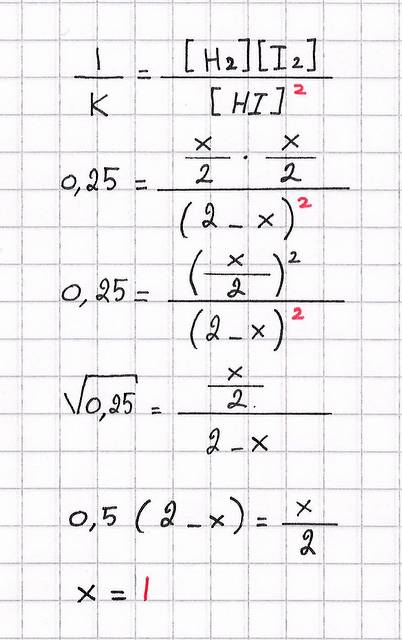 1/K = [H₂][I₂]/[HI]²
0,25 = (x/2 · x/2)/(2 - x)²
0,25 = (x/2)²/(2 - x)²
√0,25 = (x/2.)/(2 - x)
0,5 (2 - x) = x/2
x = 1